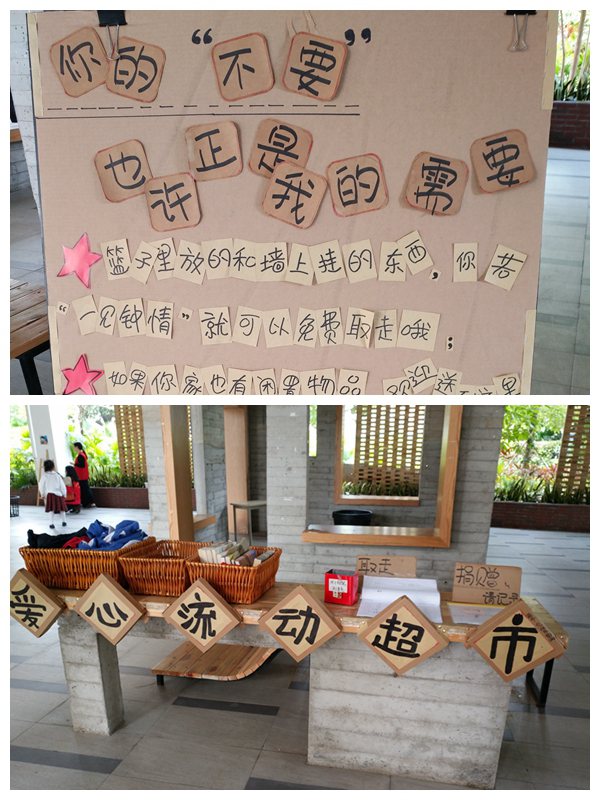 你的“不要”
也许正是我的需要
篮子里放的和墙上挂的东西，你若
“一见钟情”就可以免费取走哦；
如果你家也有闲置物品 欢迎送到这里
取走
捐赠、
请记录
爱心流动超市